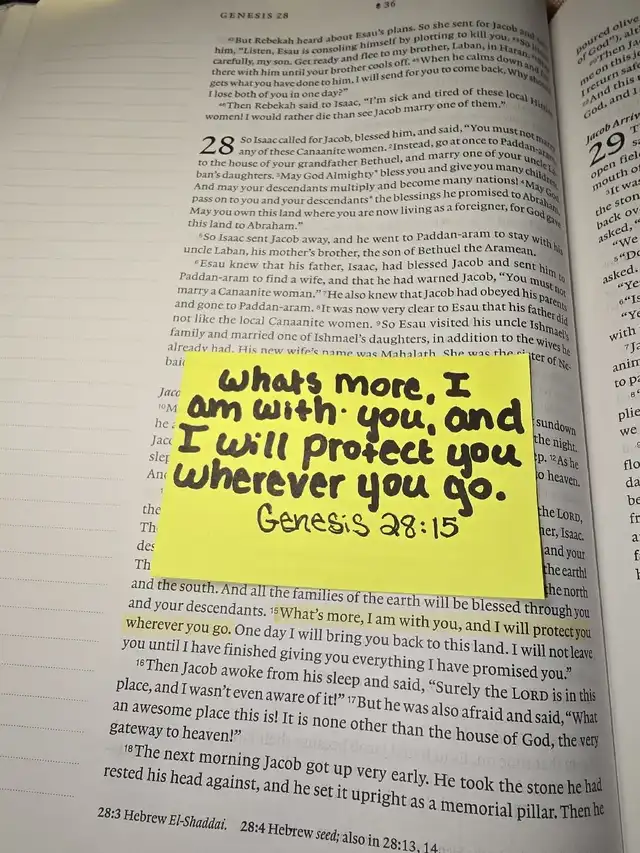 GENESIS 28
36
⁴²But Rebekah heard about Esau's plans. So she sent for Jacob and
him, "Listen, Esau is consoling himself by plotting to kill you.
carefully, my son. Get ready and flee to my brother, Laban, in Haran.
there with him until your brother cools off. ⁴⁵When he calms down and
gets what you have done to him, I will send for you to come back. Why should
I lose both of you in one day?"
⁴⁶Then Rebekah said to Isaac, "I'm sick and tired of these local Hittite
women! I would rather die than see Jacob marry one of them."
28 So Isaac called for Jacob, blessed him, and said, "You must not marry
any of these Canaanite women. ²Instead, go at once to Paddan-aram,
to the house of your grandfather Bethuel, and marry one of your uncle La-
ban's daughters. ³May God Almighty* bless you and give you many children.
And may your descendants multiply and become many nations! ⁴May God
pass on to you and your descendants* the blessings he promised to Abraham.
May you own this land where you are now living as a foreigner, for God gave
this land to Abraham."
⁵So Isaac sent Jacob away, and he went to Paddan-aram to stay with his
uncle Laban, his mother's brother, the son of Bethuel the Aramean.
⁶Esau knew that his father, Isaac, had blessed Jacob and sent him to
Paddan-aram to find a wife, and that he had warned Jacob, "You must not
marry a Canaanite woman." ⁷He also knew that Jacob had obeyed his parents
and gone to Paddan-aram. ⁸It was now very clear to Esau that his father did
not like the local Canaanite women. ⁹So Esau visited his uncle Ishmael's
family and married one of Ishmael's daughters, in addition to the wives he
already had. His new wife's name was Mahalath. She was the sister of Ne-
whats more, I
am with you, and
I will protect you
wherever you go.
Genesis 28:15
sundown
the night.
¹²As he
to heaven.
the LORD,
Isaac.
and your
the earth!
the north
and the south. And all the families of the earth will be blessed through you
and your descendants. ¹⁵What's more, I am with you, and I will protect you
wherever you go. One day I will bring you back to this land. I will not leave
you until I have finished giving you everything I have promised you."
¹⁶Then Jacob awoke from his sleep and said, "Surely the LORD is in this
place, and I wasn't even aware of it!" ¹⁷But he was also afraid and said, "What
an awesome place this is! It is none other than the house of God, the very
gateway to heaven!"
¹⁸The next morning Jacob got up very early. He took the stone he had
rested his head against, and he set it upright as a memorial pillar. Then he
28:3 Hebrew El-Shaddai. 28:4 Hebrew seed; also in 28:13, 14.
poured olive
of God"),
me on this
I return
And this
God, and
Jacob Arriv
29
open field
mouth of
the ston
back ov
asked, "
"We
asked.
with